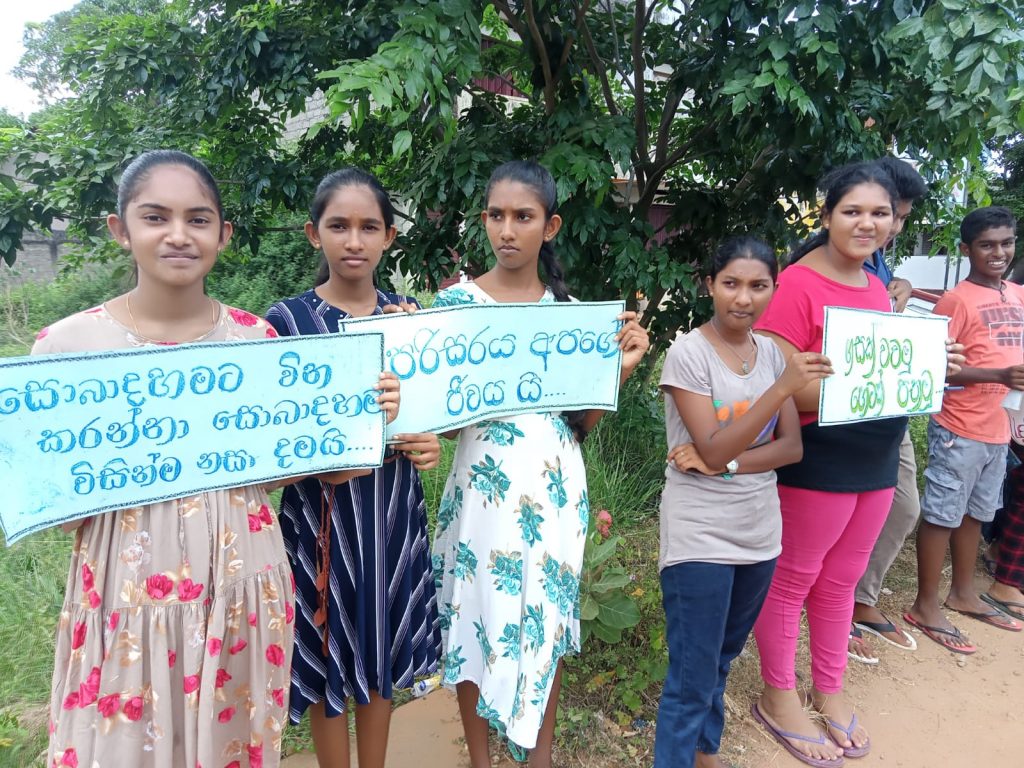 සොබාදහමට වින
කරන්නා සොබාදහම
විසින්ම නසා දමයි...
පරිසරය අපගේ
ජීවය යි....
ගසක් වටමු
ගෙන් පතුට..